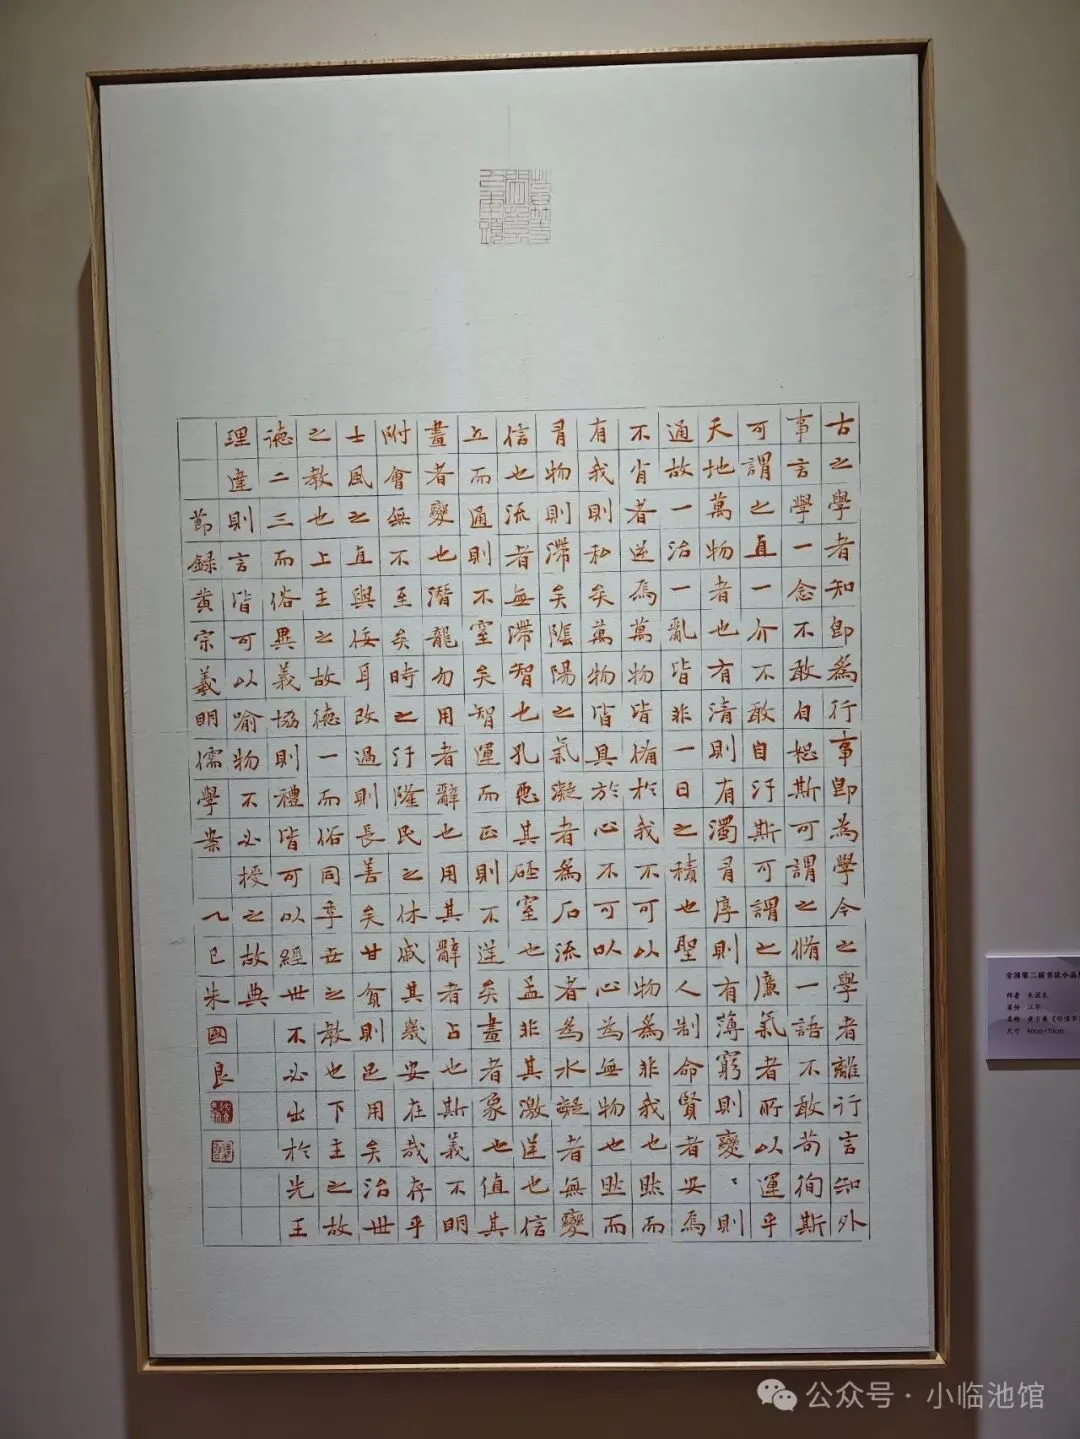 古之學者知即為行事即為學今之學者離行言知外
事言學一念不敢自恕斯可謂之脩一語不敢苟徇斯
可謂之直一介不敢自汙斯可謂之廉氣者所以運乎
天地萬物者也有清則有濁有厚則有薄窮則變、則
通故一治一亂皆非一日之積也聖人制命賢者安焉
不肖者逆焉萬物皆備於我不可以物為非我也然而
有我則私矣萬物皆具於心不可以心為無物也然而
有物則滯矣陰陽之氣凝者為石流者為水凝者無變
信也流者無滯智也孔惡其硜窒也孟非其激逆也信
立而通則不窒矣智運而正則不逆矣畫者象也值其
畫者變也潛龍勿用者辭也用其辭者占也斯義不明
附會無不至矣時之汙隆民之休戚其幾安在哉存乎
士風之直與佞耳改過則長善矣甘貧則足用矣治世
之教也上主之故德一而俗同季世之教也下主之故
德二三而俗異義協則禮皆可以經世不必出於先王
理達則言皆可以喻物不必授之故典
節錄黃宗羲明儒學案 乙巳朱國良
全国第二届书法小品
作者 朱国良
省份 江苏
名称 黄宗羲《明儒学
尺寸 80cm×50cm
公众号·小临池馆